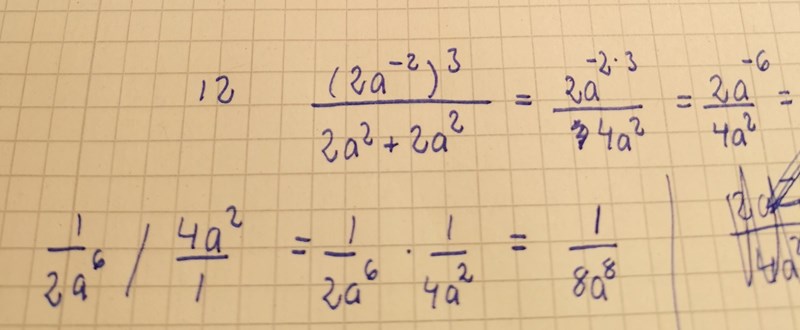 12 (2a⁻²)³ / 2a² + 2a² = 2a⁻²·³ / 4a² = 2a⁻⁶ / 4a² =
1/2a⁶ / 4a²/1 = 1/2a⁶ · 1/4a² = 1/8a⁸